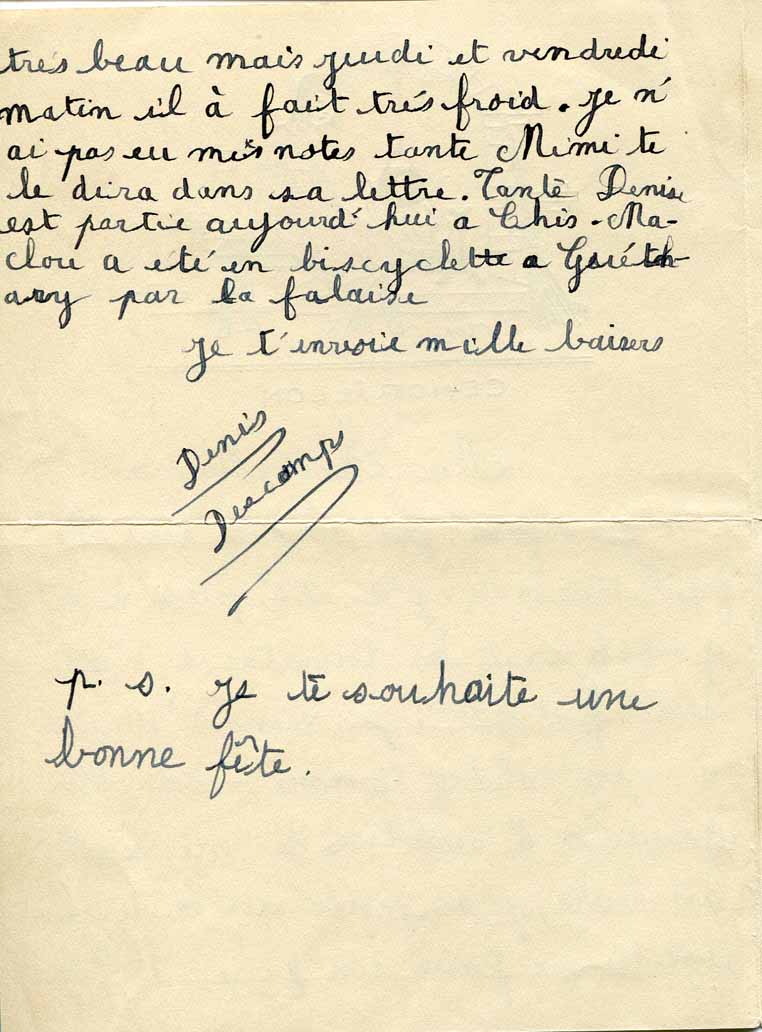 très beau mais jeudi et vendredi
matin il à fait très froid. je n'
ai pas eu mes notes tante Mimi te
le dira dans sa lettre. Tante Denise
est partie aujourd'hui a This - Ma-
clou a été en biscyclette a Guéth-
ary par la falaise
je t'envoie mille baisers
Denis
Descamps
p. s. je te souhaite une
bonne fête.